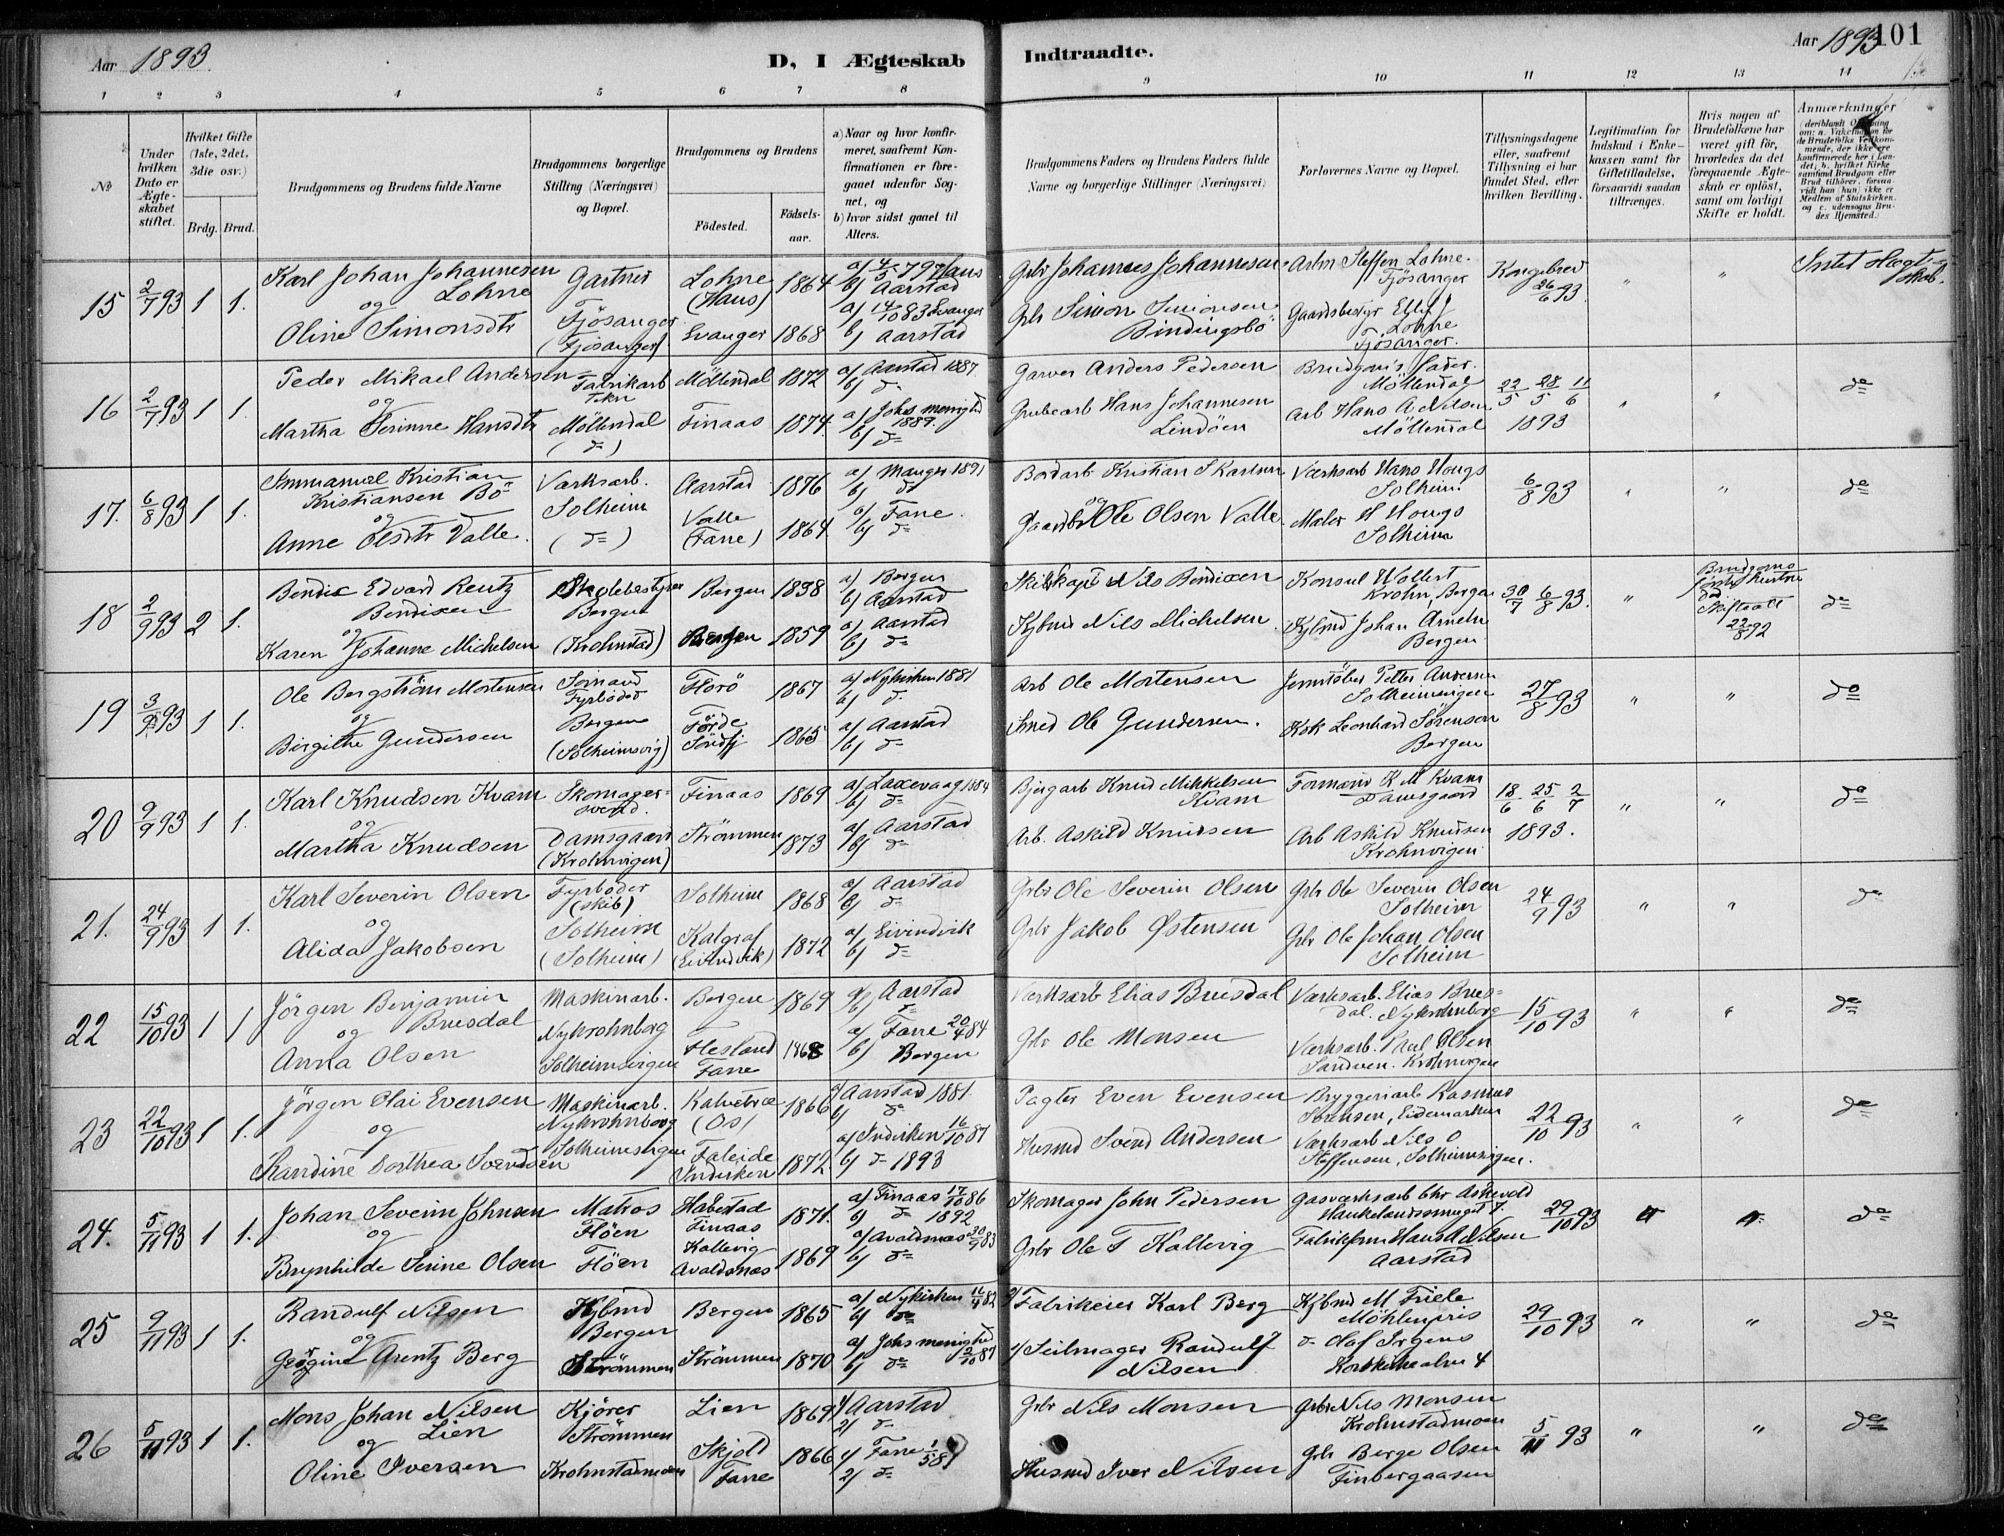 Aar 1893.
D, I Ægteskab
Indtraadte.
Aar 1893
101
1 2 3 4 5 6 7 8 9 10 11 12 13 14
No
Under hvilken Dato er Ægteskabet stiftet.
Hvilket Gifte (1ste, 2det, 3die osv.)
Brdg. Brud.
Brudgommens og Brudens fulde Navne
Brudgommens borgerlige Stilling (Næringsvei) og Bopæl.
Brudgommens og Brudens
Födested.
Födsels-aar.
a) Naar og hvor konfirmeret, saafremt Konfirmationen er foregaaet udenfor Sognet, og
b) hvor sidst gaaet til Alters.
Brudgommens Faders og Brudens Faders fulde Navne og borgerlige Stillinger (Næringsvei)
Forlovernes Navne og Bopæl.
Tillysningsdagene eller, saafremt Tillysning ei har fundet Sted, efter hvilken Bevilling.
Legitimation for Indskud i Enkekassen samt for Giftetilladelse, forsaavidt saadan tiltrænges.
Hvis nogen af Brudefolkene har været gift för, hvorledes da det foregaaende Ægteskab er oplöst, samt om lovligt Skifte er holdt.
Anmærkninger
15 2/7 93 1 1.
Karl Johan Johannesen Lohne
og
Oline Simonsdtr
Gartner
Fjösanger
(Fjösanger)
Lohne (Haus) 1864
Evanger 1868
a) 4/5 79 Haus
b) Aarstad
a) 14/10 83 Evanger
b) Aarstad
Gbr Johannes Johannesen
Gbr Simon Simonsen Bindingsbö
Arbm Steffen Lohne. Fjösanger
Gaardsbestyr Ellef Lohne Fjösanger.
Kongebrev 26/6 93
" "
Intet Slægtskab.
16 2/7 93 1 1.
Peder Mikael Andersen
og
Martha Serinne Hansdtr
Fabrikarb
Möllendal
(do)
Möllendal 1872
Finaas 1874
a) Aarstad 1887
b) do
a) Johs menighed 1889.
b) do
Garver Anders Pedersen
Grubearb Hans Johannesen Lindöen
Brudgom's fader. Möllendal
Arb Hans A Nilsen Möllendal
22/5 28/5 11/6 1893
" "
do
17. 6/8 93 1 1.
Immanuel Kristian Kristiansen Bö
og
Anne Olsdtr Valle.
Værksarb.
Solheim
(do)
Aarstad 1876
Valle (Fane) 1864
a) Manger 1891
b) do
a) Fane.
b) do
Bordarb Kristian S Karlsen
Gaardbr Ole Olsen Valle.
Værksarb Hans Hougs Solheim
Maler H Hougs Solheim
6/8 93
" "
do
18 2/9 93 2 1.
Bendix Edvard Rentz Bendixen
og
Karen Johanne Michelsen
Skolebestyrer
Bergen
(Krohnstad)
Bergen 1838
Bergen 1859
a) Bergen
b) Aarstad
a) Aarstad
b) do
Skibskapt Nils Bendixen
Kjbmd Nils Michelsen
Konsul Wollert Krohn, Bergen
Kjbmd Johan Ameln Bergen
30/7 6/8 93.
"
Brudgoms
död
22/8 92
do
19 3/9 93 1 1.
Ole Bergström Mortensen
og
Birgithe Gundersen
Fyrböder
Bergen
(Solheimsvig)
Florö 1867
Förde Söndfj 1865
a) Nykirken 1881
b) do
a) Aarstad
b) do
Arb Ole Mortensen
Smed Ole Gundersen.
Jernstöber Petter Andersen Solheimsvigen
Kok Leonhard Sörensen Bergen
27/8 93
" "
do
20 9/9 93 1 1.
Karl Knudsen Kvam
og
Martha Knudsen
Skomagersvend.
Damsgaard
(Krohnvigen)
Finaas 1869
Strömmen 1873
a) Laxevaag 1884
b) do
a) Aarstad
b) do
Bjergarb Knud Mikkelsen Kvam
Arb. Askild Knudsen
Formand K M Kvam Damsgaard
Arb Askild Knudsen Krohnvigen
18/6 25/6 2/7 1893.
" "
do
21. 24/9 93 1 1.
Karl Severin Olsen
og
Alida Jakobsen
Fyrböder (skib)
Solheim
(Solheim)
Solheim 1868
(Eivindvik) 1872
a) Aarstad
b) do
a) Eivindvik
b) do
Grbr Ole Severin Olsen
Grbr Jakob Østensen
Grbr Ole Severin Olsen Solheim
Grbr Ole Johan Olsen Solheim
24/9 93
" "
do
22 15/10 93 1 1
Jörgen Benjamin Brusdal
og
Anna Olsen
Maskinarb.
Nykrohnborg
Solheimsvigen
Bergen 1869
Flesland Fane 1868
a) Aarstad
b) do
a) Fane 20/4 84
b) Bergen
Værksarb Elias Brusdal
Gbr Ole Monsen
Værksarb. Elias Brusdal. Nykrohnborg
Værksarb. Paul Olsen Sandven. Krohnvigen
15/10 93
" "
do
23 22/10 93 1 1.
Jörgen Olai Evensen
og
Randine Dorthea Svendsen
Maskinarb.
Nykrohnborg
Solheimsvigen
Kalvetræ (Os) 1866
Faleide Indviken 1872.
a) Aarstad 1881.
b) do
a) Indviken 16/10 87
b) do 1893
Pagter Even Evensen
Husmd Svend Andersen
Bryggeriarb Rasmus Sörensen, Eidemarken
Værksarb Nils O Steffensen, Solheimsvigen.
22/10 93
" "
do
24. 5/11 93 1 1.
Johan Severin Johnsen
og
Brynhilde Serine Olsen
Matros
Flöen
Flöen
Habestad Finaas 1871.
Kallevig Avaldsnæs 1869
a) Finaas 17/10 86
b) do 1892
a) Avaldsnæs 30/9 83
b) do
Skomager John Pedersen
Grbr Ole T Kallevig
Gasværksarb Chr Askevold Haukelandssmuget 7.
Fabrikform Hans A Nilsen Aarstad
29/10 93
" "
do
25 9/11 93 1 1.
Randulf Nilsen
og
Georgine Arentz Berg
Kjbmd
Bergen
Strömmen
Bergen 1865
Strömmen 1870
a) Nykirken 16/4 82
b) do
a) Johs menighed 2/10 87
b) do
2/ Fabrikeier Karl Berg
1/ Seilmager Randulf Nilsen
Kjbmd M Friele Möhlenpris
do Olaf Irgens Korskirkealm 4
29/10 93
" "
do
26 5/11 93 1 1.
Mons Johan Nilsen Lien
og
Oline Iversen
Kjörer
Strömmen
Krohnstadmoen
Lien 1869
Skjold Fane 1866
1/ Aarstad
2/ do
1/ Fane 1/5 81
2/ do
Grbr Nils Monsen
Husmd Iver Nilsen
Grbr Nils Monsen Krohnstadmoen
Grbr Berge Olsen Finbergaasen
5/11 93
" "
do